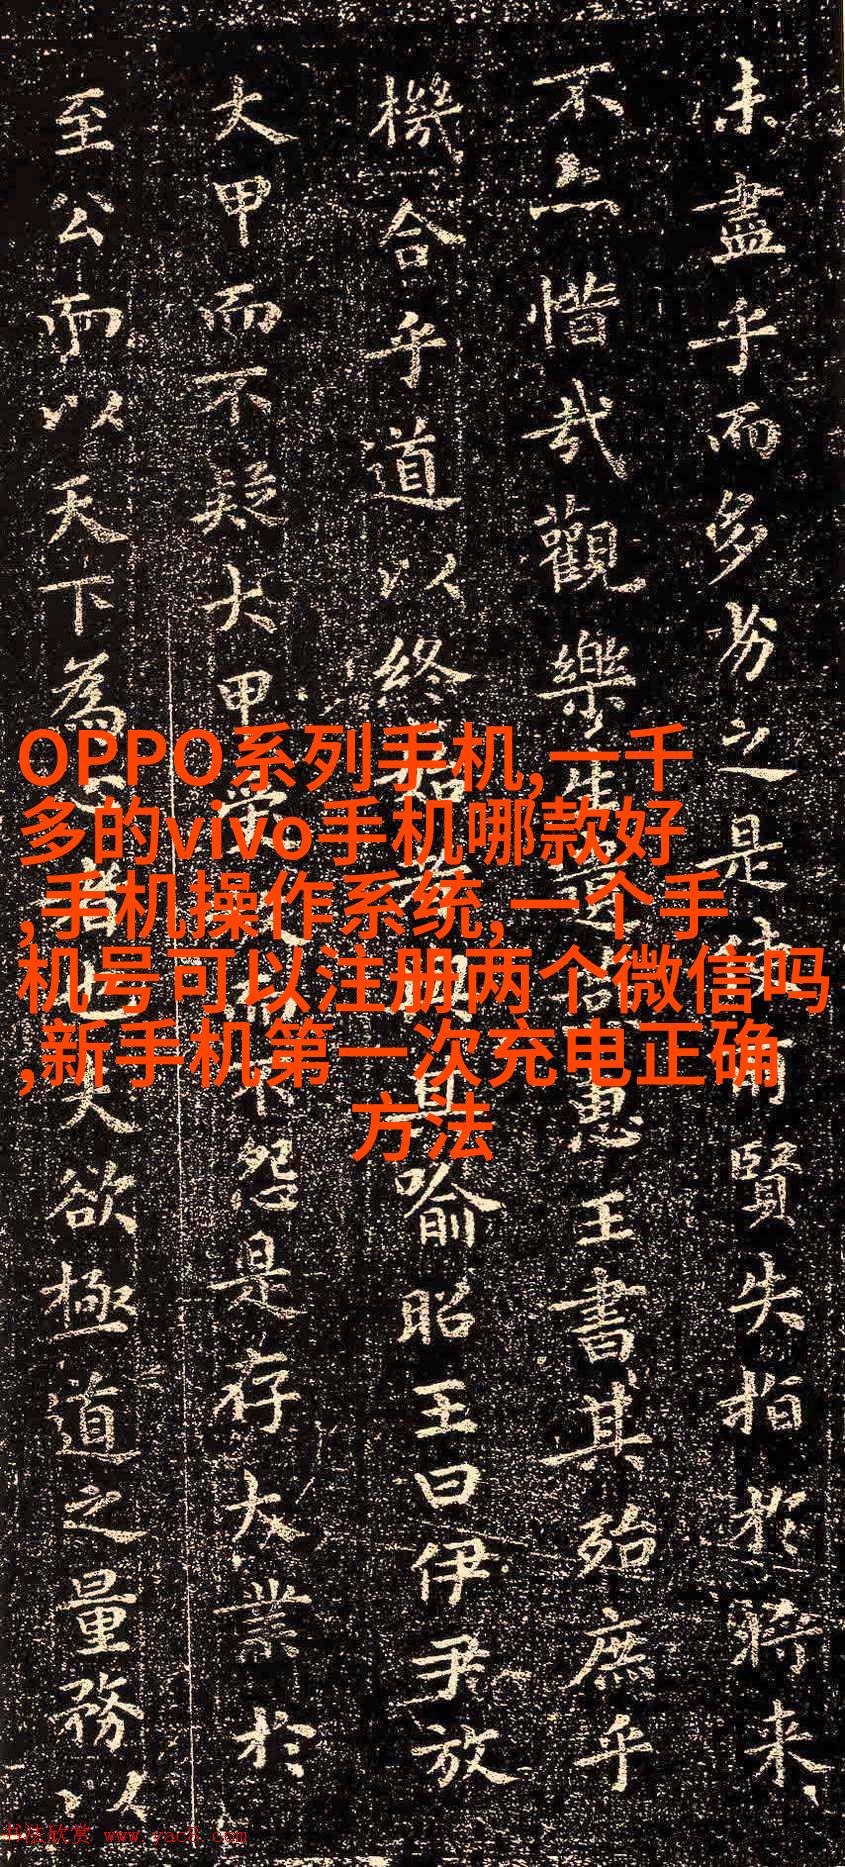 未盡乎而多劣之是賢失指於將来
不亦惜哉觀樂生遺惠王書其殆庶乎
機合乎道以終喻昭王曰伊尹放
大甲而不疑大甲受不怨是存大業於
至公而以天下為者也夫欲極道之量務以
OPPO系列手机,一千
多的vivo手机哪款好
,手机操作系统,一个手
机号可以注册两个微信吗
,新手机第一次充电正确
方法
书法欣赏 www.yac8.com